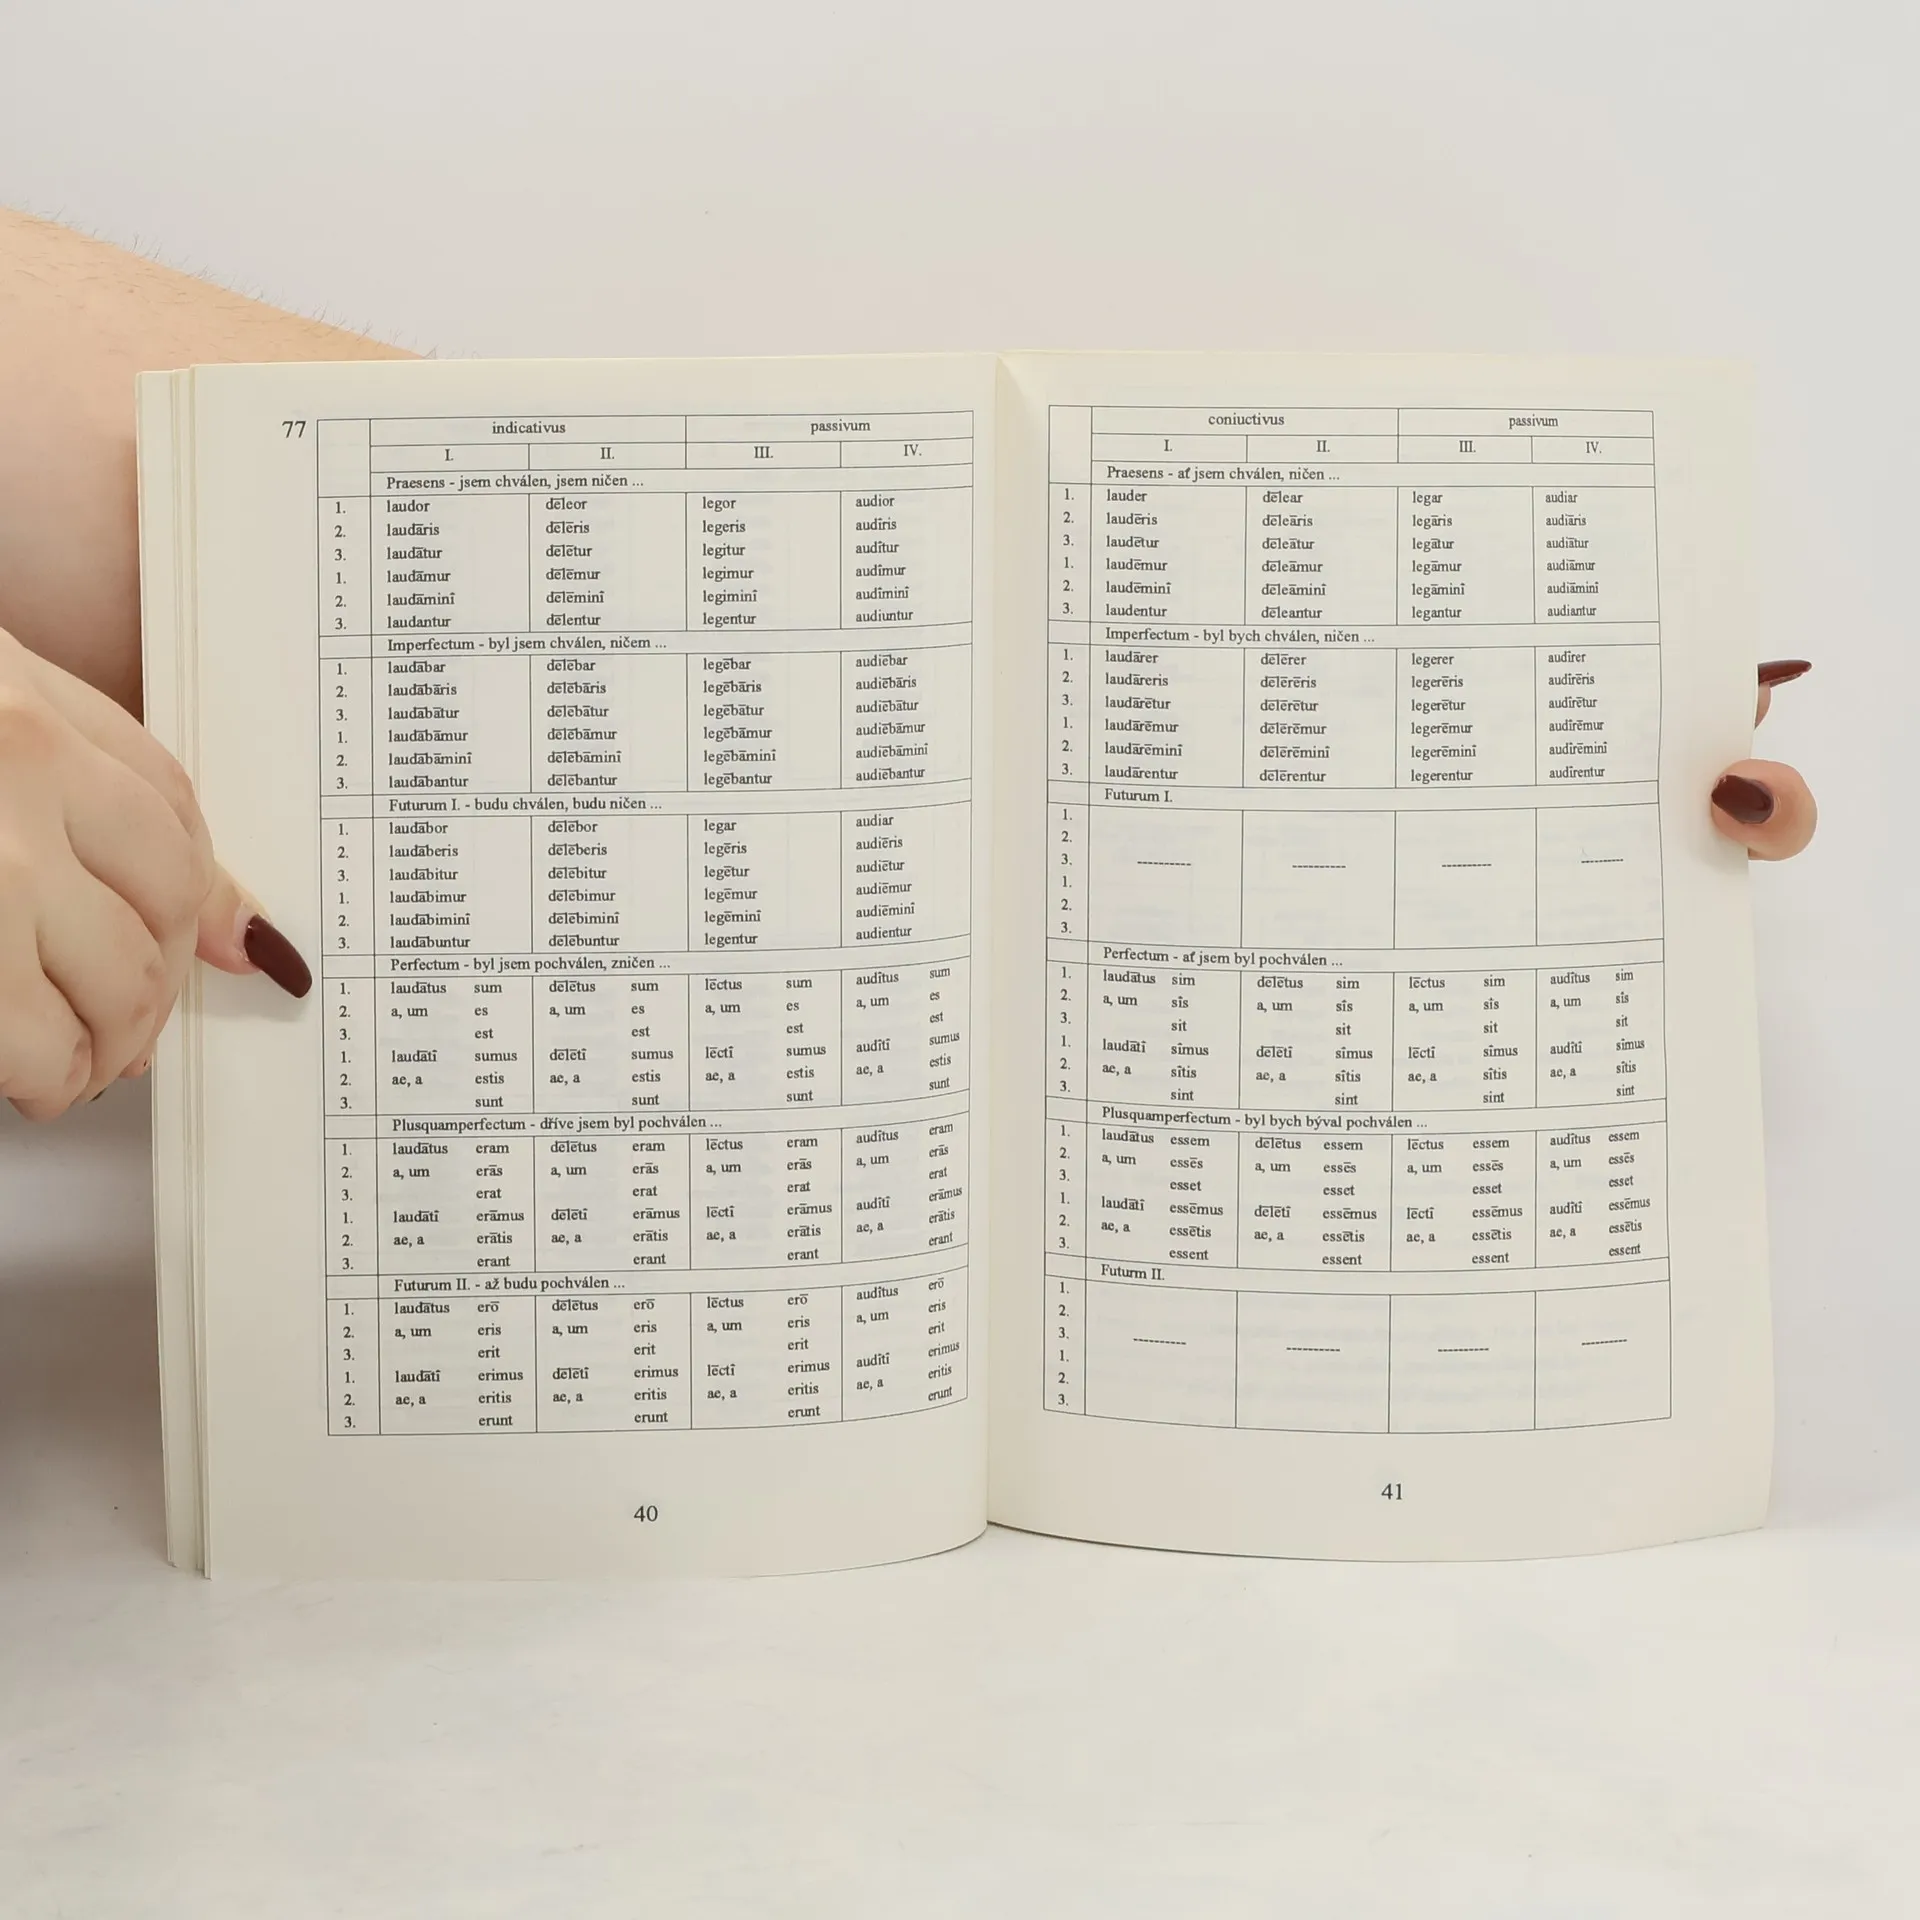 77
indicativus passivum
I. II. III. IV.
Praesens - jsem chválen, jsem ničen ...
1. laudor dēleor legor audior
2. laudāris dēlēris legeris audīris
3. laudātur dēlētur legitur audītur
1. laudāmur dēlēmur legimur audīmur
2. laudāminī dēlēminī legiminī audīminī
3. laudantur dēlentur legentur audiuntur
Imperfectum - byl jsem chválen, ničem ...
1. laudābar dēlēbar legēbar audiēbar
2. laudābāris dēlēbāris legēbāris audiēbāris
3. laudābātur dēlēbātur legēbātur audiēbātur
1. laudābāmur dēlēbāmur legēbāmur audiēbāmur
2. laudābāminī dēlēbāminī legēbāminī audiēbāminī
3. laudābantur dēlēbantur legēbantur audiēbantur
Futurum I. - budu chválen, budu ničen ...
1. laudābor dēlēbor legar audiar
2. laudāberis dēlēberis legēris audiēris
3. laudābitur dēlēbitur legētur audiētur
1. laudābimur dēlēbimur legēmur audiēmur
2. laudābiminī dēlēbiminī legēminī audiēminī
3. laudābuntur dēlēbuntur legentur audientur
Perfectum - byl jsem pochválen, zničen ...
1. laudātus sum dēlētus sum lēctus sum audītus sum
2. a, um es a, um es a, um es a, um es
3. est est est est
1. laudātī sumus dēlētī sumus lēctī sumus audītī sumus
2. ae, a estis ae, a estis ae, a estis ae, a estis
3. sunt sunt sunt sunt
Plusquamperfectum - dříve jsem byl pochválen ...
1. laudātus eram dēlētus eram lēctus eram audītus eram
2. a, um erās a, um erās a, um erās a, um erās
3. erat erat erat erat
1. laudātī erāmus dēlētī erāmus lēctī erāmus audītī erāmus
2. ae, a erātis ae, a erātis ae, a erātis ae, a erātis
3. erant erant erant erant
Futurum II. - až budu pochválen ...
1. laudātus erō dēlētus erō lēctus erō audītus erō
2. a, um eris a, um eris a, um eris a, um eris
3. erit erit erit erit
1. laudātī erimus dēlētī erimus lēctī erimus audītī erimus
2. ae, a eritis ae, a eritis ae, a eritis ae, a eritis
3. erunt erunt erunt erunt
40
coniuctivus passivum
I. II. III. IV.
Praesens - ať jsem chválen, ničen ...
1. lauder dēlear legar audiar
2. laudēris dēleāris legāris audiāris
3. laudētur dēleātur legātur audiātur
1. laudēmur dēleāmur legāmur audiāmur
2. laudēminī dēleāminī legāminī audiāminī
3. laudentur dēleantur legantur audiantur
Imperfectum - byl bych chválen, ničen ...
1. laudārer dēlērer legerer audīrer
2. laudāreris dēlērēris legerēris audīrēris
3. laudārētur dēlērētur legerētur audīrētur
1. laudārēmur dēlērēmur legerēmur audīrēmur
2. laudārēminī dēlērēminī legerēminī audīrēminī
3. laudārentur dēlērentur legerentur audīrentur
Futurum I.
1.
2.
3. ---------- ---------- ---------- ----------
1.
2.
3.
Perfectum - ať jsem byl pochválen ...
1. laudātus sim dēlētus sim lēctus sim audītus sim
2. a, um sīs a, um sīs a, um sīs a, um sīs
3. sit sit sit sit
1. laudātī sīmus dēlētī sīmus lēctī sīmus audītī sīmus
2. ae, a sītis ae, a sītis ae, a sītis ae, a sītis
3. sint sint sint sint
Plusquamperfectum - byl bych býval pochválen ...
1. laudātus essem dēlētus essem lēctus essem audītus essem
2. a, um essēs a, um essēs a, um essēs a, um essēs
3. esset esset esset esset
1. laudātī essēmus dēlētī essēmus lēctī essēmus audītī essēmus
2. ae, a essētis ae, a essētis ae, a essētis ae, a essētis
3. essent essent essent essent
Futurm II.
1.
2.
3. ---------- ---------- ---------- ----------
1.
2.
3.
41